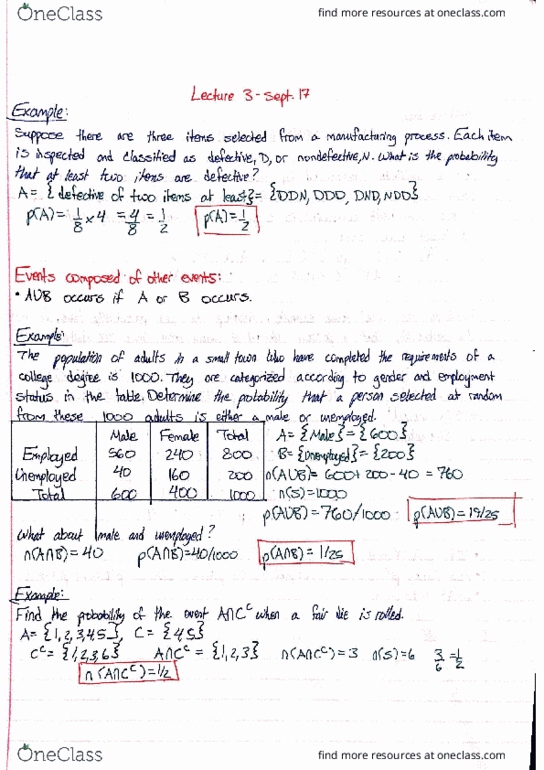 OneClass
find more resources at oneclass.com
Lecture 3 - Sept. 17
Example:
Suppose there are three items selected from a manufacturing process. Each item
is inspected and classified as defective, D, or nondefective, N. What is the probability
that at least two items are defective?
A = { defective of two items at least} = {DDN, DDD, DND, NDD}
p(A) = 1/8 × 4 = 4/8 = 1/2 p(A) = 1/2
Events composed of other events:
• AUB occurs if A or B occurs.
Example:
The population of adults in a small town who have completed the requirements of a
college degree is 1000. They are categorized according to gender and employment
status in the table. Determine the probability that a person selected at random
from these 1000 adults is either a male or unemployed.
Male Female Total A = {Male} = {600}
Employed 560 240 800 B = {Unemployed} = {200}
Unemployed 40 160 200 n(AUB) = 600 + 200 - 40 = 760
Total 600 400 1000 n(S) = 1000
p(AUB) = 760/1000 p(AUB) = 19/25
What about male and unemployed?
n(A∩B) = 40 p(A∩B) = 40/1000 p(A∩B) = 1/25
Example:
Find the probability of the event A∩Cᶜ when a fair die is rolled.
A = {1,2,3,4,5}, C = {4,5}
Cᶜ = {1,2,3,6} A∩Cᶜ = {1,2,3} n(A∩Cᶜ) = 3 n(S) = 6 3/6 = 1/2
n(A∩Cᶜ) = 1/2
OneClass
find more resources at oneclass.com